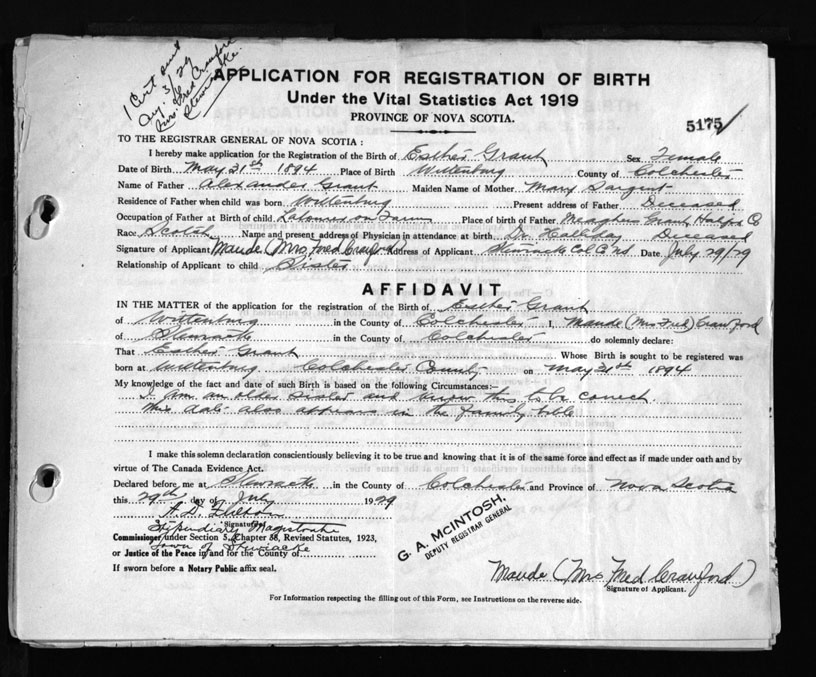 1 Cert sent
Aug. 3/29
to
Mrs. Fred Crawford
Stewiacke.
APPLICATION FOR REGISTRATION OF BIRTH
Under the Vital Statistics Act 1919
PROVINCE OF NOVA SCOTIA.
5175
TO THE REGISTRAR GENERAL OF NOVA SCOTIA:
I hereby make application for the Registration of the Birth of Esther Grant Sex Female
Date of Birth May 31st 1894 Place of Birth Wittenburg County of Colchester
Name of Father Alexander Grant Maiden Name of Mother Mary Sargent
Residence of Father when child was born Wittenburg Present address of Father Deceased
Occupation of Father at Birth of child Labourer on Farm Place of birth of Father Meaghers Grant, Halifax Co
Race Scotch Name and present address of Physician in attendance at birth Dr. Halliday Deceased
Signature of Applicant Maude (Mrs Fred Crawford) Address of Applicant Stewiacke Col. Co. NS Date July 29/29
Relationship of Applicant to child Sister
AFFIDAVIT
IN THE MATTER of the application for the registration of the Birth of Esther Grant
of Wittenburg in the County of Colchester I, Maude (Mrs Fred) Crawford
of Stewiacke in the County of Colchester do solemnly declare:
That Esther Grant Whose Birth is sought to be registered was
born at Wittenburg Colchester County on May 31st 1894
My knowledge of the fact and date of such Birth is based on the following Circumstances:—
I am an older sister and know this to be correct.
This date also appears in the family bible
I make this solemn declaration conscientiously believing it to be true and knowing that it is of the same force and effect as if made under oath and by
virtue of The Canada Evidence Act.
Declared before me at Stewiacke in the County of Colchester and Province of Nova Scotia
this 29th day of July 1929
Signature of
Stipendiary Magistrate
Commissioner under Section 5, Chapter 38, Revised Statutes, 1923,
Town of Stewiacke
or Justice of the Peace in and for the County of
If sworn before a Notary Public affix seal.
G. A. McINTOSH,
DEPUTY REGISTRAR GENERAL
Maude (Mrs Fred Crawford)
Signature of Applicant.
For Information respecting the filling out of this Form, see Instructions on the reverse side.